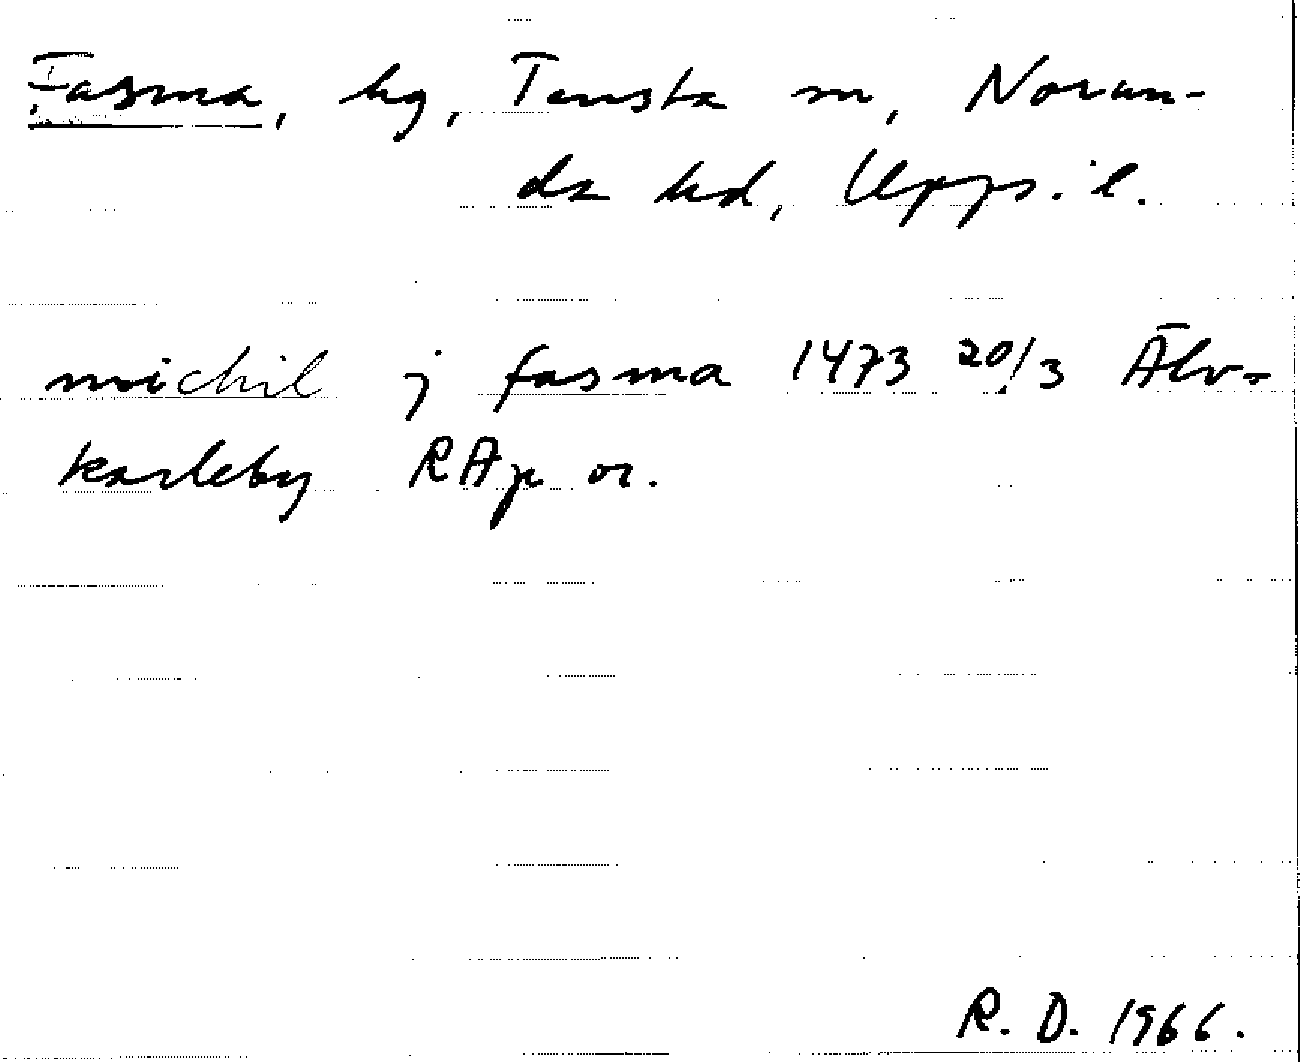 Fasma, hg, Tensta sn, Norun-
da hd, Upps. l.
michil j fasma 1473 20/3 Älv-
karleby RAp or.
R. D. 1966.